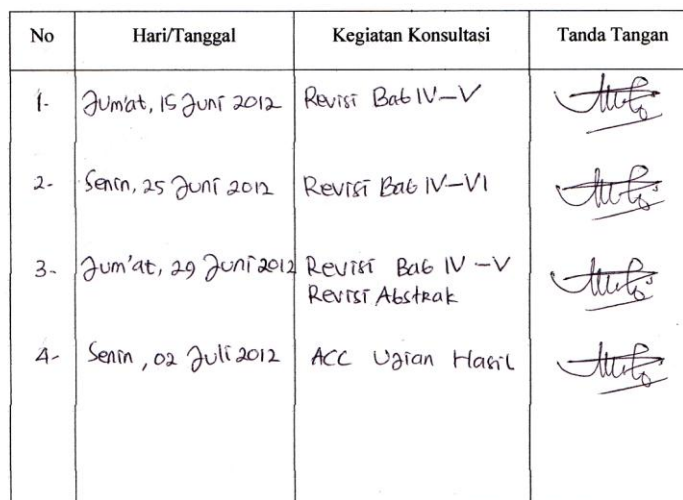 No Hari/Tanggal Kegiatan Konsultasi Tanda Tangan
1- Jum'at, 15 Juni 2012 Revisi Bab IV-V
2- Senin, 25 Juni 2012 Revisi Bab IV-VI
3- Jum'at, 29 Juni 2012 Revisi Bab IV-V
Revisi Abstrak
4- Senin, 02 Juli 2012 ACC Ujian Hasil